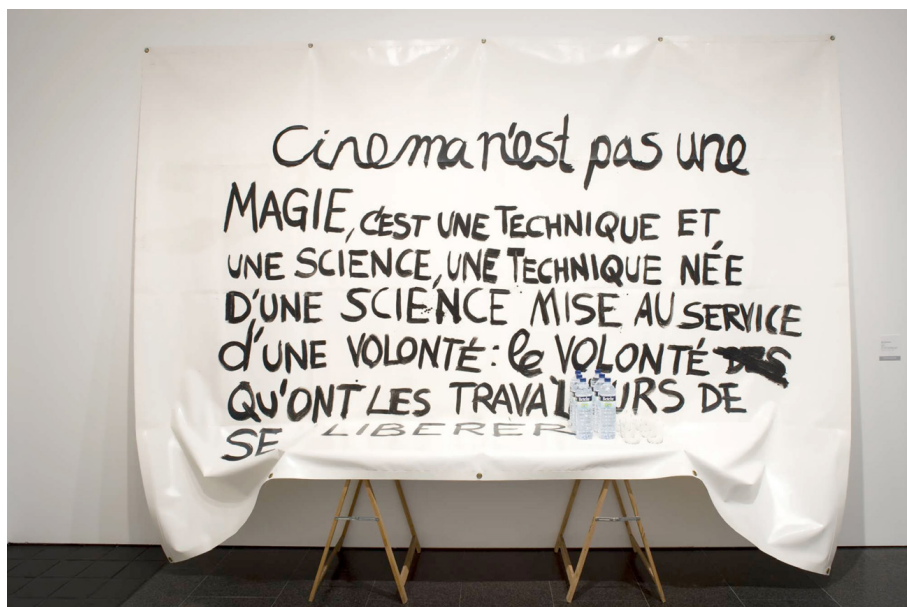 Cinema n'est pas une
MAGIE, C'EST UNE TECHNIQUE ET
UNE SCIENCE, UNE TECHNIQUE NÉE
D'UNE SCIENCE MISE AU SERVICE
d'UNE VOLONTÉ: le VOLONTÉ
QU'ONT LES DE
SE LIBERER